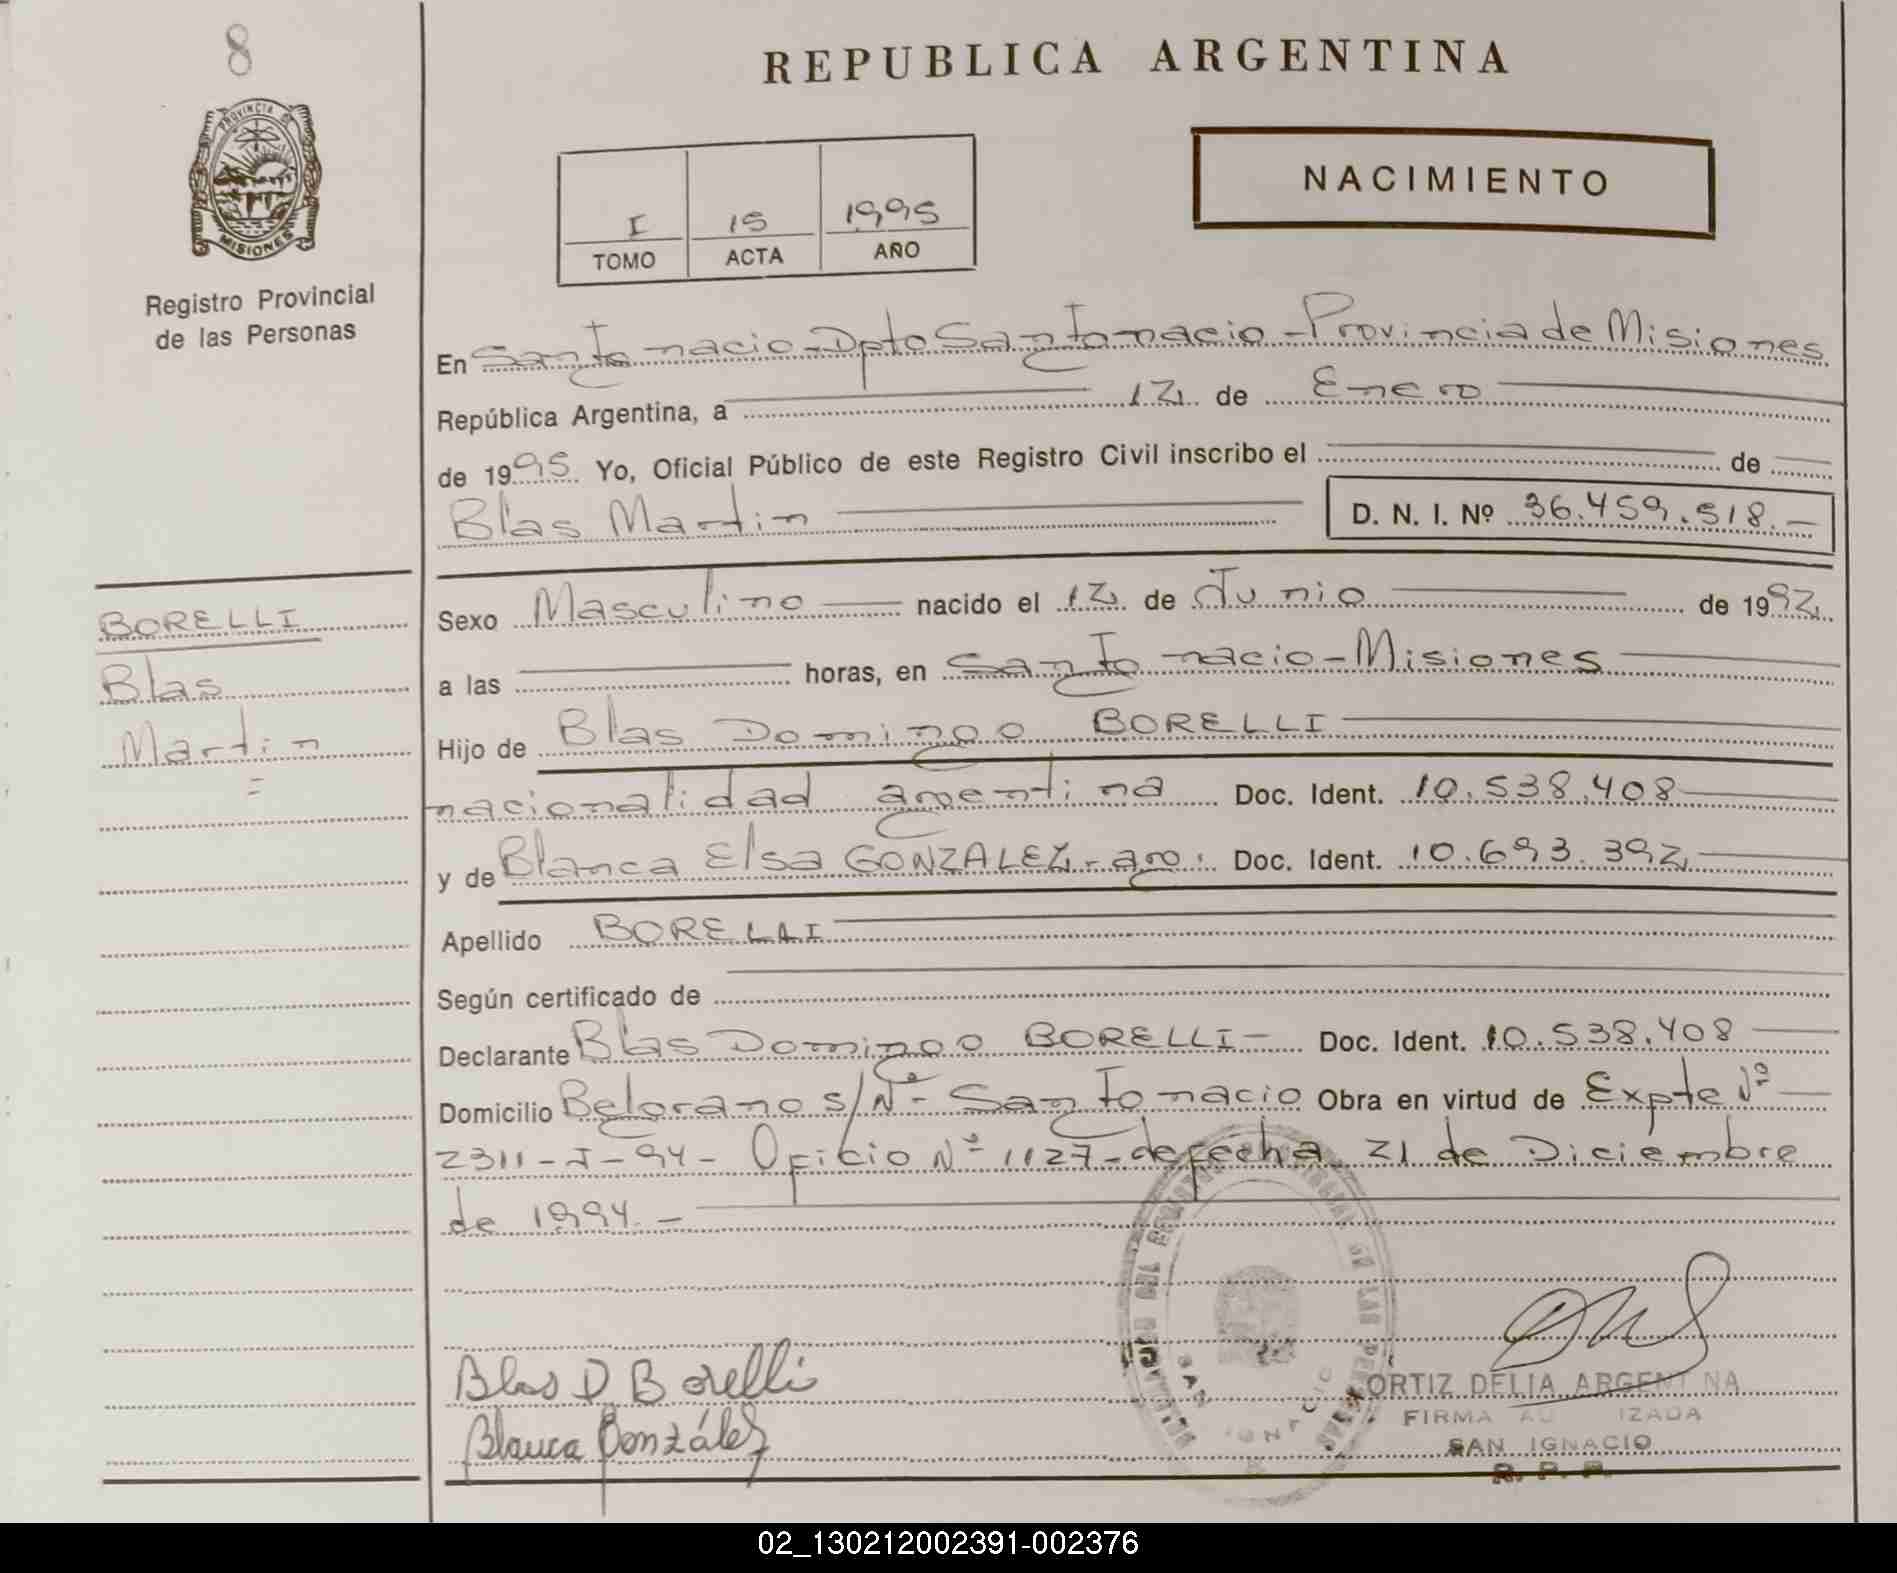 8
REPUBLICA ARGENTINA
PROVINCIA DE
MISIONES
Registro Provincial
de las Personas
I 15 1995
TOMO ACTA AÑO
NACIMIENTO
En San Ignacio - Dpto San Ignacio - Provincia de Misiones
República Argentina, a 12 de Enero
de 1995 Yo, Oficial Público de este Registro Civil inscribo el de
Blas Martin D. N. I. Nº 36.459.518.-
BORELLI
Blas
Martin
=
Sexo Masculino nacido el 12 de Junio de 1992
a las horas, en San Ignacio - Misiones
Hijo de Blas Domingo BORELLI
nacionalidad argentina Doc. Ident. 10.538.408
y de Blanca Elsa GONZALEZ - arg. Doc. Ident. 10.693.392
Apellido BORELLI
Según certificado de
Declarante Blas Domingo BORELLI - Doc. Ident. 10.538.408
Domicilio Belgrano s/Nº - San Ignacio Obra en virtud de Expte Nº
2311-I-94- Oficio Nº 1127- de fecha 21 de Diciembre
de 1994.-
Blas D Borelli
Blanca González
SAN IGNACIO
ORTIZ DELIA ARGENTINA
FIRMA AU IZADA
SAN IGNACIO
R. P. P.
02_130212002391-002376